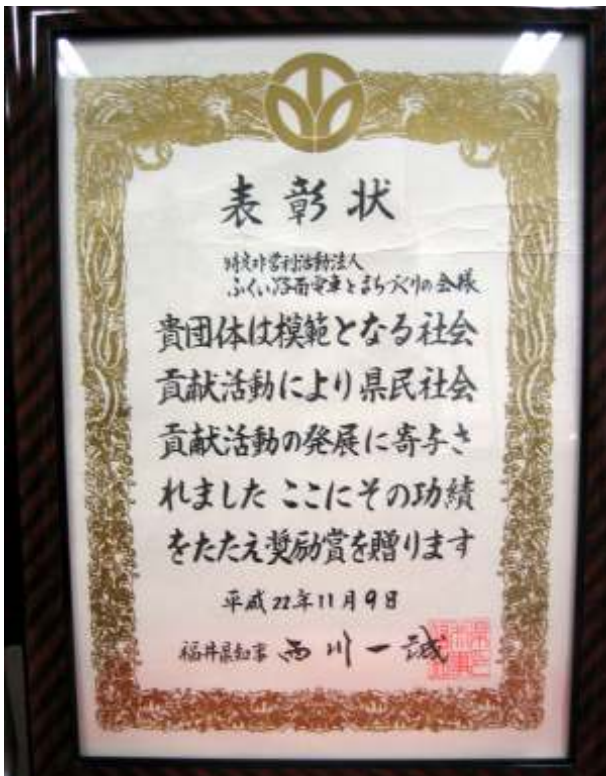 表彰状
特定非営利活動法人
ふくい路面電車とまちづくりの会様
貴団体は模範となる社会
貢献活動により県民社会
貢献活動の発展に寄与さ
れました ここにその功績
をたたえ奨励賞を贈ります
平成22年11月9日
福井県知事 西川一誠